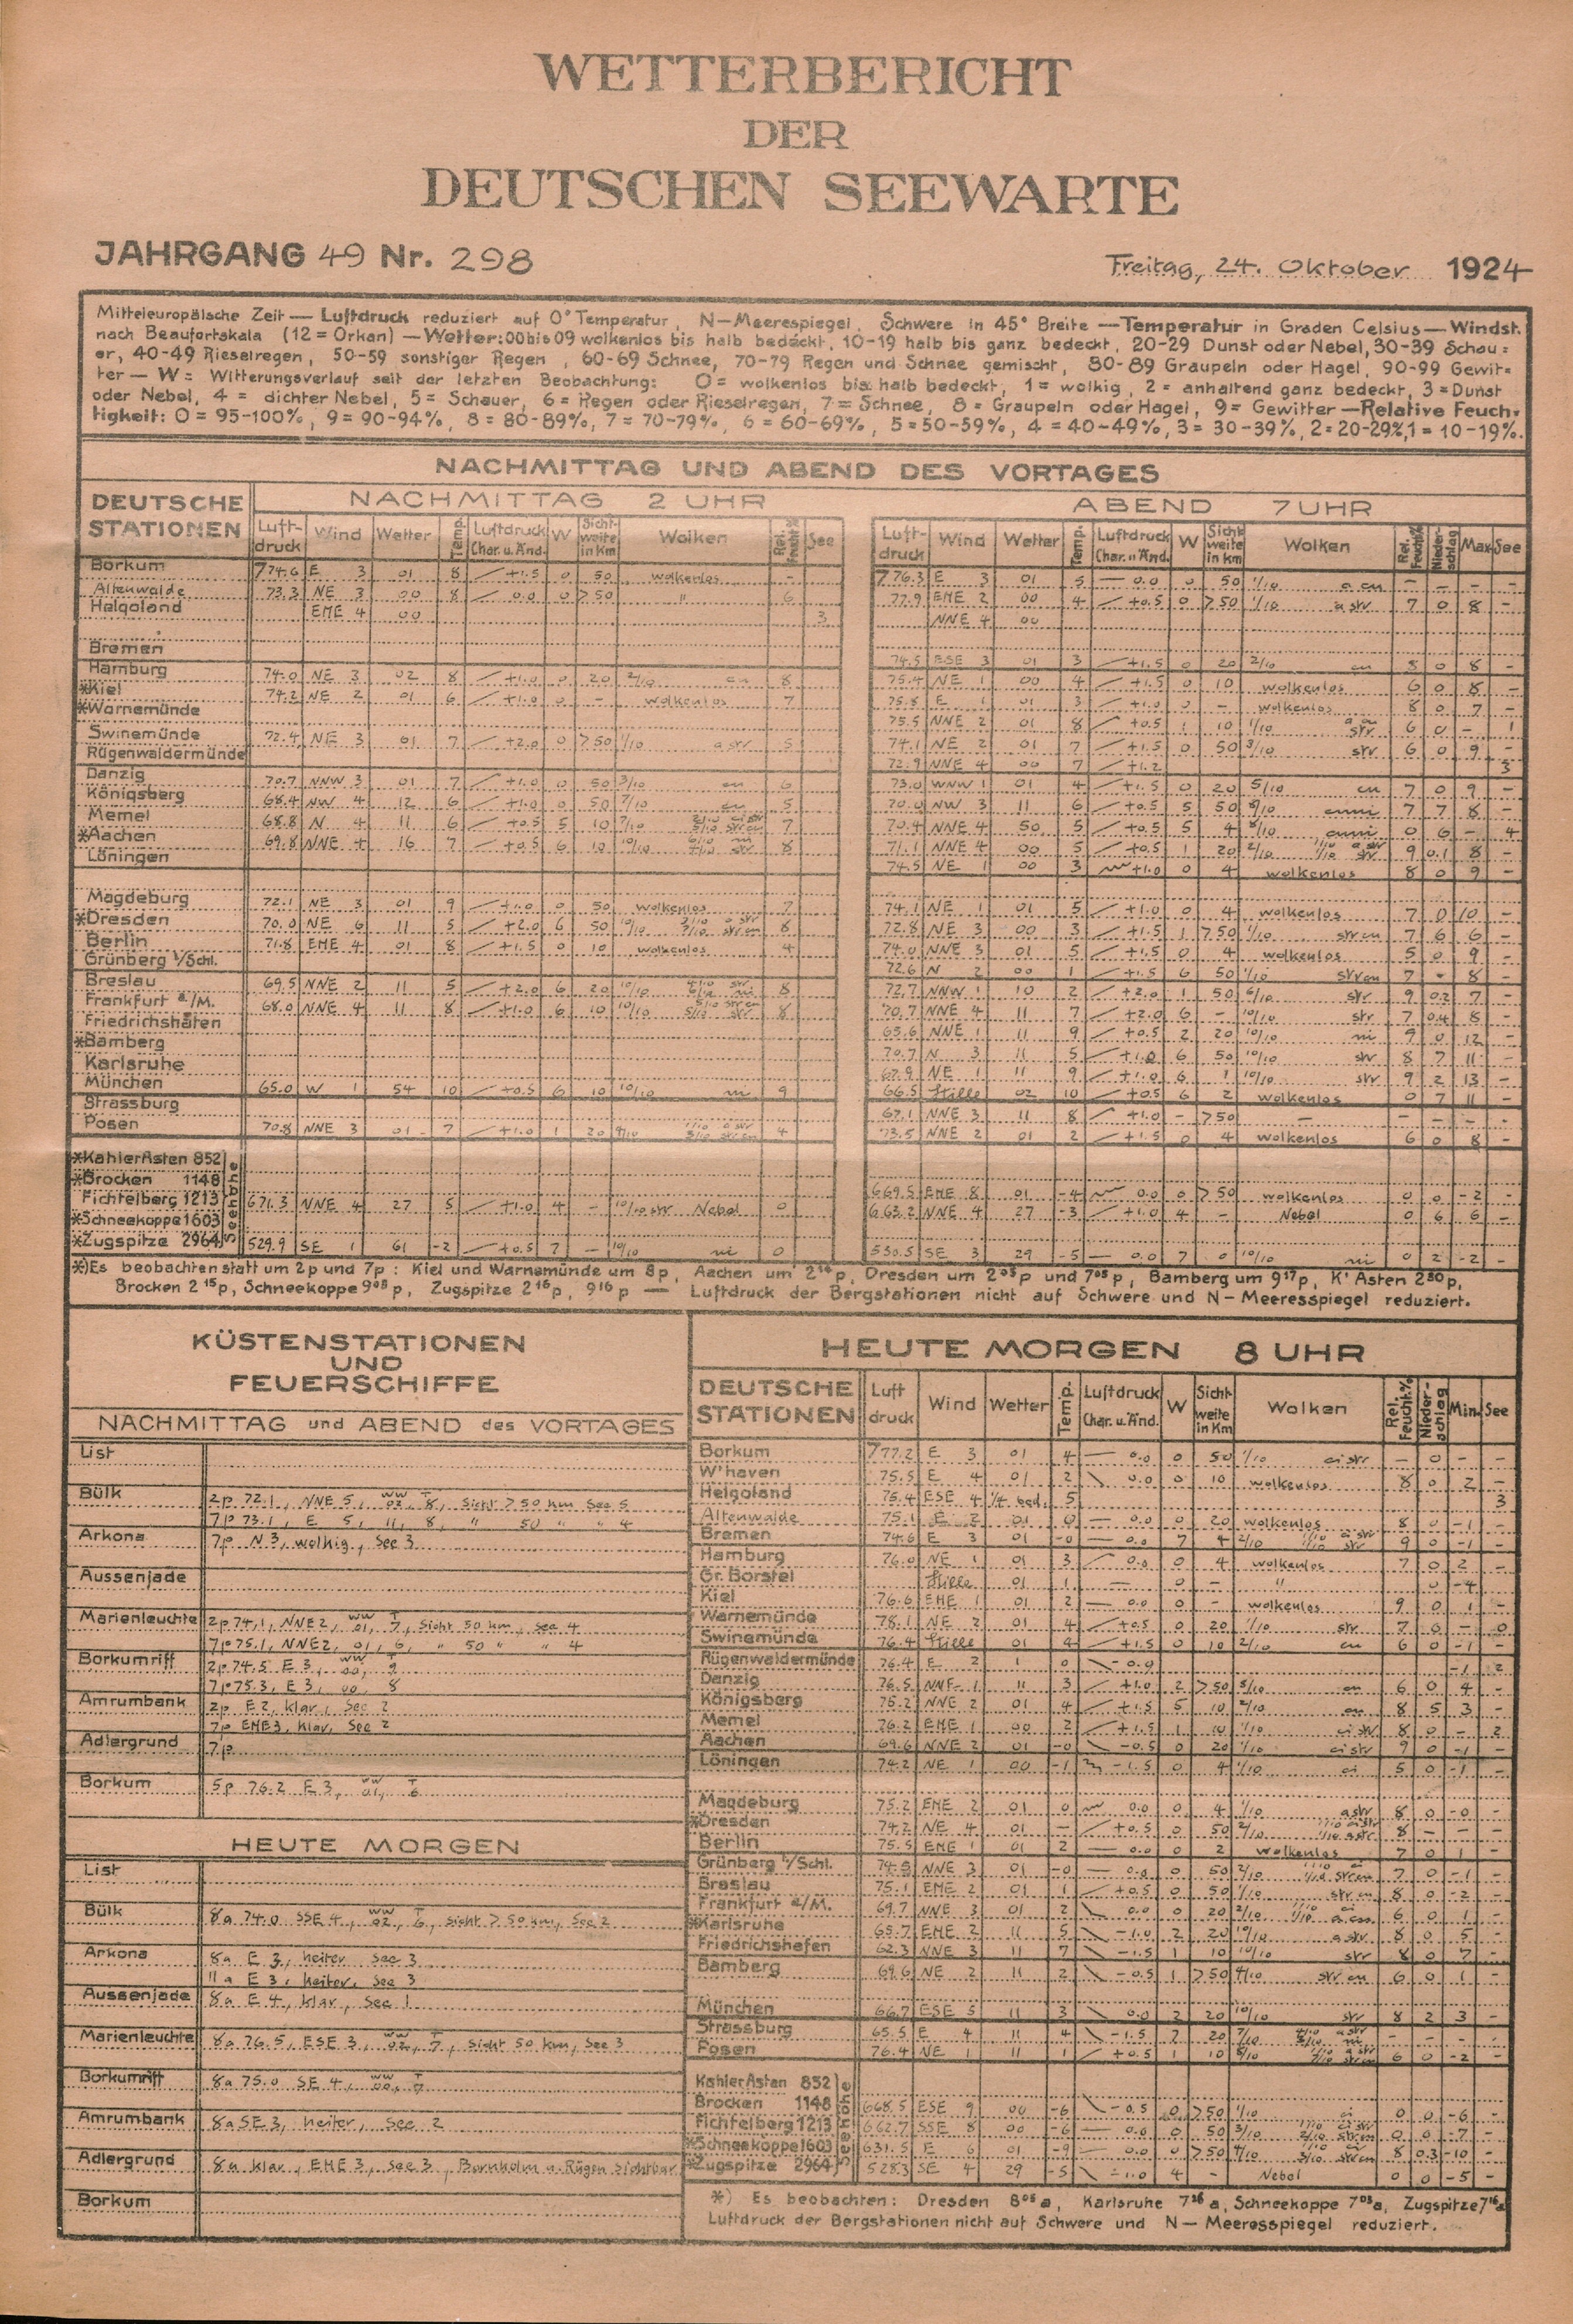 WETTERBERICHT
DER
DEUTSCHEN SEEWARTE
JAHRGANG 49 Nr. 298
Freitag, 24. Oktober 1924
Mitteleuropäische Zeit — Luftdruck reduziert auf 0° Temperatur, N—Meerespiegel, Schwere in 45° Breite — Temperatur in Graden Celsius — Windst.
nach Beaufortskala (12 = Orkan) — Wetter: 00 bis 09 wolkenlos bis halb bedeckt, 10-19 halb bis ganz bedeckt, 20-29 Dunst oder Nebel, 30-39 Schau=
er, 40-49 Rieselregen, 50-59 sonstiger Regen, 60-69 Schnee, 70-79 Regen und Schnee gemischt, 80-89 Graupeln oder Hagel, 90-99 Gewit=
ter — W = Witterungsverlauf seit der letzten Beobachtung: 0 = wolkenlos bis halb bedeckt, 1 = wolkig, 2 = anhaltend ganz bedeckt, 3 = Dunst
oder Nebel, 4 = dichter Nebel, 5 = Schauer, 6 = Regen oder Rieselregen, 7 = Schnee, 8 = Graupeln oder Hagel, 9 = Gewitter — Relative Feuch=
tigkeit: 0 = 95-100%, 9 = 90-94%, 8 = 80-89%, 7 = 70-79%, 6 = 60-69%, 5 = 50-59%, 4 = 40-49%, 3 = 30-39%, 2 = 20-29%, 1 = 10-19%.
NACHMITTAG UND ABEND DES VORTAGES
DEUTSCHE STATIONEN
NACHMITTAG 2 UHR
ABEND 7 UHR
Luft-druck Wind Wetter Temp. Luftdruck Char. u. Änd. W Sicht-weite in Km Wolken Rel. Feucht.% See
Luft-druck Wind Wetter Temp. Luftdruck Char. u. Änd. W Sicht weite in Km Wolken Rel. Feucht.% Nieder-schlag Max. See
Borkum 774.6 E 3 01 8 +1.5 0 50 wolkenlos - 776.3 E 3 01 5 — 0.0 0 50 1/10 a cu - - - -
Altenwalde 73.3 NE 3 00 8 0.0 0 >50 " 6 77.9 ENE 2 00 4 +0.5 0 >50 1/10 a str 7 0 8 -
Helgoland ENE 4 00 3 NNE 4 00
Bremen 74.5 ESE 3 01 3 +1.5 0 20 2/10 cu 8 0 8 -
Hamburg 74.0 NE 3 02 8 +1.0 0 20 2/10 cu 8 75.4 NE 1 00 4 +1.5 0 10 wolkenlos 6 0 8 -
*Kiel 74.2 NE 2 01 6 +1.0 0 - wolkenlos 7 75.8 E 1 01 3 +1.0 0 - wolkenlos 8 0 7 -
*Warnemünde 75.5 NNE 2 01 8 +0.5 1 10 1/10 str 6 0 - 1
Swinemünde 72.4 NE 3 01 7 +2.0 0 >50 1/10 a str 5 74.1 NE 2 01 7 +1.5 0 50 3/10 str 6 0 9 -
Rügenwaldermünde 72.9 NNE 4 00 7 +1.2 3
Danzig 70.7 NNW 3 01 7 +1.0 0 50 3/10 cu 6 73.0 WNW 1 01 4 +1.5 0 20 5/10 cu 7 0 9 -
Königsberg 68.4 NW 4 12 6 +1.0 0 50 7/10 cu 5 70.0 NW 3 11 6 +0.5 5 50 8/10 cuni 7 7 8 -
Memel 68.8 N 4 11 6 +0.5 5 10 7/10 7 70.4 NNE 4 50 5 +0.5 5 4 8/10 cuni 0 6 - 4
*Aachen 69.8 NNE 4 16 7 +0.5 6 10 10/10 8 71.1 NNE 4 00 5 +0.5 1 20 2/10 1/10 a str 9 0.1 8 -
Löningen 74.5 NE 1 00 3 +1.0 0 4 wolkenlos 8 0 9 -
Magdeburg 72.1 NE 3 01 9 +1.0 0 50 wolkenlos 7 74.1 NE 1 01 5 +1.0 0 4 wolkenlos 7 0 10 -
*Dresden 70.0 NE 6 11 5 +2.0 6 50 10/10 8 72.8 NE 3 00 3 +1.5 1 >50 1/10 strcu 7 6 6 -
Berlin 71.8 ENE 4 01 8 +1.5 0 10 wolkenlos 4 74.0 NNE 3 01 5 +1.5 0 4 wolkenlos 5 0 9 -
Grünberg i/Schl. 72.6 N 2 00 1 +1.5 6 50 1/10 strcu 7 - 8 -
Breslau 69.5 NNE 2 11 5 +2.0 6 20 10/10 8 72.7 NNW 1 10 2 +2.0 1 50 6/10 str 9 0.2 7 -
Frankfurt a/M. 68.0 NNE 4 11 8 +1.0 6 10 10/10 8 70.7 NNE 4 11 7 +2.0 6 - 10/10 str 7 0.4 8 -
Friedrichshafen 65.6 NNE 1 11 9 +0.5 2 20 10/10 ni 9 0 12 -
*Bamberg 70.7 N 3 11 5 +1.0 6 50 10/10 str 8 7 11 -
Karlsruhe 67.9 NE 1 11 9 +1.0 6 1 10/10 str 9 2 13 -
München 65.0 W 1 54 10 +0.5 6 10 10/10 ni 9 66.5 Stille 02 10 +0.5 6 2 wolkenlos 0 7 11 -
Strassburg 67.1 NNE 3 11 8 +1.0 - >50 - - - - -
Posen 70.8 NNE 3 01 7 +1.0 1 20 4/10 4 73.5 NNE 2 01 2 +1.5 0 4 wolkenlos 6 0 8 -
Seehöhe
*Kahler Asten 852
*Brocken 1148 669.5 ENE 8 01 -4 0.0 0 >50 wolkenlos 0 0 -2 -
Fichtelberg 1213 671.3 NNE 4 27 5 +1.0 4 - 10/10 str Nebel 0 663.2 NNE 4 27 -3 +1.0 4 - Nebel 0 6 6 -
*Schneekoppe 1603
*Zugspitze 2964 529.9 SE 1 61 -2 +0.5 7 - 10/10 ni 0 530.5 SE 3 29 -5 — 0.0 7 0 10/10 ni 0 2 -2 -
*) Es beobachten statt um 2p und 7p: Kiel und Warnemünde um 8p, Aachen um 2¹⁶p, Dresden um 2⁰⁵p und 7⁰⁵p, Bamberg um 9¹⁷p, K' Asten 2³⁰p,
Brocken 2¹⁵p, Schneekoppe 9⁰⁸p, Zugspitze 2¹⁶p, 9¹⁶p — Luftdruck der Bergstationen nicht auf Schwere und N—Meeresspiegel reduziert.
KÜSTENSTATIONEN
UND
FEUERSCHIFFE
NACHMITTAG und ABEND des VORTAGES
List
Bülk 2p 72.1, NNE 5, ww 02, T 8, Sicht > 50 km See 5
7p 73.1, E 5, 11, 8, " 50 " " 4
Arkona 7p N 3, wolkig, See 3
Aussenjade
Marienleuchte 2p 74.1, NNE 2, ww 01, T 7, Sicht 50 km, See 4
7p 75.1, NNE 2, 01, 6, " 50 " " 4
Borkumriff 2p 74.5 E 3, ww 00, T 9
7p 75.3, E 3, 00, 8
Amrumbank 2p E 2, klar, See 2
7p ENE 3, klar, See 2
Adlergrund 7p
Borkum 5p 76.2 E 3, ww 01, T 6
HEUTE MORGEN
List
Bülk 8a 74.0 SSE 4, ww 02, T 6, Sicht > 50 km, See 2
Arkona 8a E 3, heiter See 3
11a E 3, heiter, See 3
Aussenjade 8a E 4, klar, See 1
Marienleuchte 8a 76.5, ESE 3, ww 02, T 7, Sicht 50 km, See 3
Borkumriff 8a 75.0 SE 4, ww 00, T 7
Amrumbank 8a SE 3, heiter, See 2
Adlergrund 8a klar, ENE 3, See 3, Bornholm u. Rügen sichtbar
Borkum
HEUTE MORGEN 8 UHR
DEUTSCHE STATIONEN Luft druck Wind Wetter Temp. Luftdruck Char. u. Änd. W Sicht weite in Km Wolken Rel. Feucht.% Nieder-schlag Min. See
Borkum 777.2 E 3 01 4 — 0.0 0 50 1/10 ci str - 0 - -
W'haven 75.5 E 4 01 2 0.0 0 10 wolkenlos 8 0 2 -
Helgoland 75.4 ESE 4 1/4 bed. 5 3
Altenwalde 75.1 E 2 01 0 — 0.0 0 20 wolkenlos 8 0 -1 -
Bremen 74.6 E 3 01 -0 — 0.0 7 4 2/10 9 0 -1 -
Hamburg 76.0 NE 1 01 3 0.0 0 4 wolkenlos 7 0 2 -
Gr. Borstel Stille 01 1 — 0 - " 0 -4
Kiel 76.6 ENE 1 01 2 — 0.0 0 - wolkenlos 9 0 1 -
Warnemünde 78.1 NE 2 01 4 +0.5 0 20 1/10 str 7 6 - 0
Swinemünde 76.4 Stille 01 4 +1.5 0 10 2/10 cu 6 0 -1 -
Rügenwaldermünde 76.4 E 2 1 0 -0.9 -1 2
Danzig 76.5 NNE 1 11 3 +1.0 2 >50 5/10 cu 6 0 4 -
Königsberg 75.2 NNE 2 01 4 +1.5 5 10 2/10 cu 8 5 3 -
Memel 76.2 ENE 1 00 2 +1.5 1 10 1/10 ci str 8 0 - 2
Aachen 69.6 NNE 2 01 -0 -0.5 0 20 1/10 ci str 9 0 -1 -
Löningen 74.2 NE 1 00 -1 -1.5 0 4 1/10 ci 5 0 -1 -
Magdeburg 75.2 ENE 2 01 0 0.0 0 4 1/10 a str 8 0 -0 -
*Dresden 74.2 NE 4 01 - +0.5 0 50 2/10 8 - - -
Berlin 75.5 ENE 1 01 2 — 0.0 0 2 wolkenlos 7 0 1 -
Grünberg i/Schl. 74.5 NNE 3 01 -0 — 0.0 0 50 2/10 7 0 -1 -
Breslau 75.1 ENE 2 01 1 +0.5 0 50 1/10 str cu 8 0 -2 -
Frankfurt a/M. 69.7 NNE 3 01 2 0.0 0 20 2/10 6 0 1 -
*Karlsruhe 65.7 ENE 2 11 5 -1.0 2 20 10/10 a str 8 0 5 -
Friedrichshafen 62.3 NNE 3 11 7 -1.5 1 10 10/10 str 8 0 7 -
Bamberg 69.6 NE 2 11 2 -0.5 1 >50 4/10 str cu 6 0 1 -
München 66.7 ESE 5 11 3 0.0 2 20 10/10 str 8 2 3 -
Strassburg 65.5 E 4 11 4 -1.5 2 20 7/10 - - - -
Posen 76.4 NE 1 11 1 +0.5 1 10 8/10 6 0 -2 -
Seehöhe
Kahler Asten 852
Brocken 1148 668.5 ESE 9 00 -6 -0.5 0 >50 1/10 ci 0 0 -6 -
Fichtelberg 1213 662.7 SSE 8 00 -6 — 0.0 0 50 3/10 0 0 -7 -
*Schneekoppe 1603 631.5 E 6 01 -9 — 0.0 0 >50 4/10 8 0.3 -10 -
*Zugspitze 2964 528.3 SE 4 29 -5 -1.0 4 - Nebel 0 0 -5 -
*) Es beobachten: Dresden 8⁰⁵a, Karlsruhe 7²⁶a, Schneekoppe 7⁰³a, Zugspitze 7¹⁶a
Luftdruck der Bergstationen nicht auf Schwere und N—Meeresspiegel reduziert.